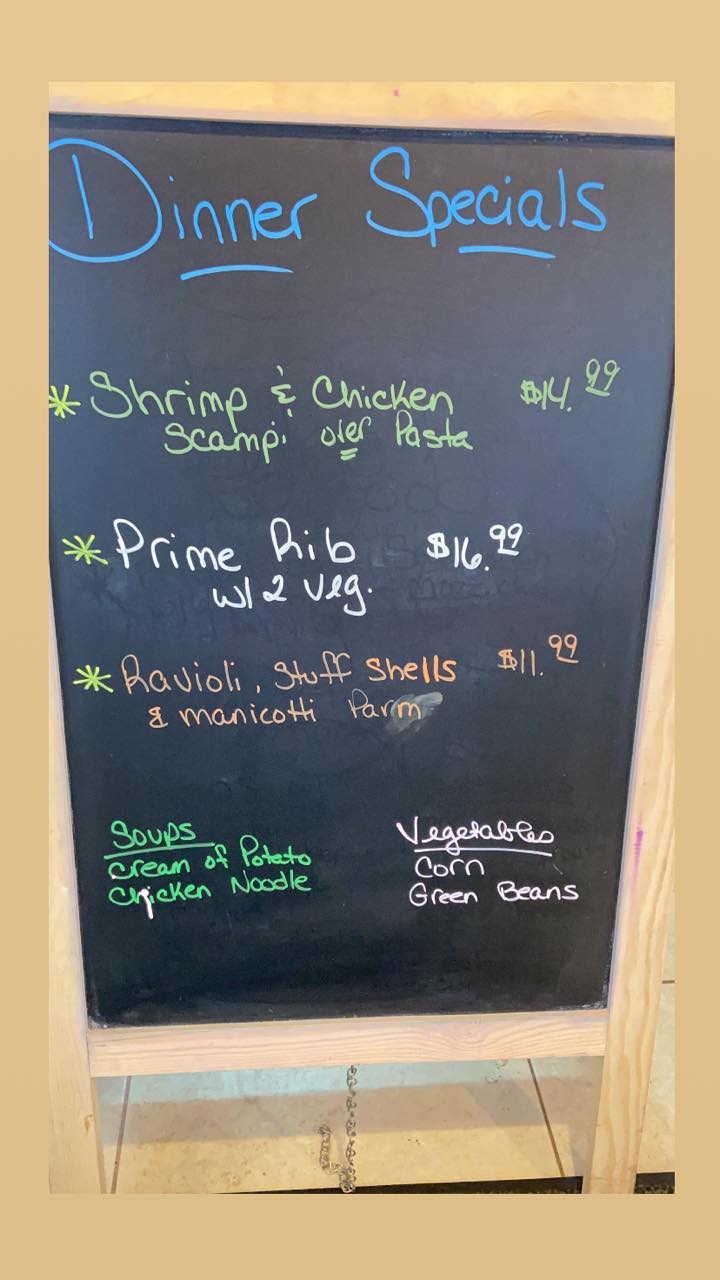 Dinner Specials
* Shrimp & Chicken $14.99
Scampi over Pasta
* Prime Rib $16.99
w/ 2 veg.
* Ravioli, Stuff Shells $11.99
& manicotti Parm
Soups
Cream of Potato
Chicken Noodle
Vegetables
Corn
Green Beans